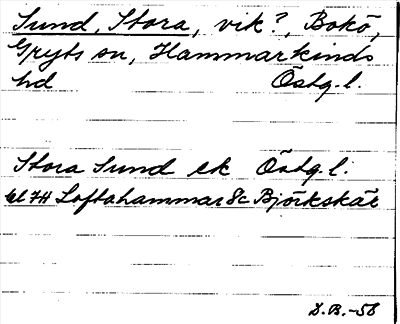 Sund, Stora, vik?, Bokö,
Gryts sn, Hammarkinds
hd Östg.l.
Stora Sund ek Östg.l.
bl 74 Loftahammar 8c Björkskär
D.B.-56